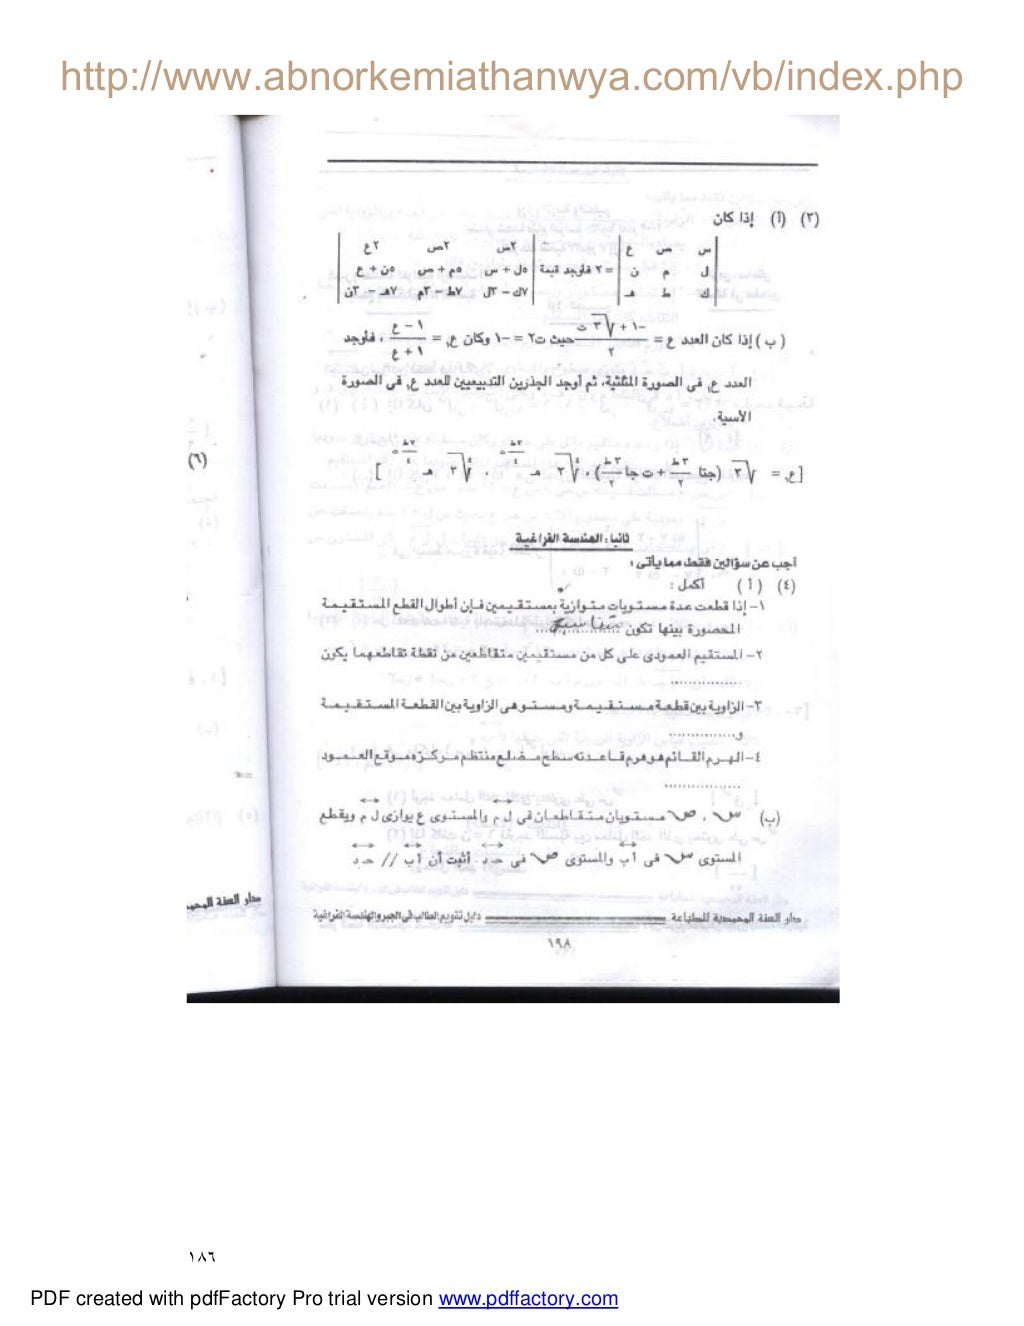 http://www.abnorkemiathanwya.com/vb/index.php
(٣) (أ) إذا كان
| س ص ع | = ٢ فأوجد قيمة | ٢س ٢ص ٢ع |
| ل م ن | | ٥ل + س ٥م + ص ٥ن + ع |
| ك ط هـ | | ٧ك – ٣ل ٧ط – ٣م ٧هـ – ٣ن |
(ب) إذا كان العدد ع = (-١ + √٣ ت) / ٢ حيث ت٢ = -١ وكان ع, = (١ – ع) / (١ + ع) ، فأوجد
العدد ع, فى الصورة المثلثية، ثم أوجد الجذرين التربيعيين للعدد ع, فى الصورة
الأسية.
[ع, = √٣ (جتا ٣ط/٢ + ت جا ٣ط/٢)،
ثانيا: الهندسة الفراغية
أجب عن سؤالين فقط مما يأتى :
(٤) (أ) أكمل :
١– إذا قطعت عدة مستويات متوازية بمستقيمين فإن أطوال القطع المستقيمة
المحصورة بينها تكون متناسبة
٢– المستقيم العمودى على كل من مستقيمين متقاطعين من نقطة تقاطعهما يكون
................
٣– الزاوية بين قطعة مستقيمة ومستو هى الزاوية بين القطعة المستقيمة
و...............
٤– الهرم القائم هو هرم قاعدته سطح مضلع منتظم مركزه موقع العمود
................
(ب) س ، ص مستويان متقاطعان فى ل م والمستوى ع يوازى ل م ويقطع
المستوى س فى أب والمستوى ص فى حـ د . أثبت أن أب // حـ د
دار السنة المحمدية للطباعة دليل تقويم الطالب فى الجبر والهندسة الفراغية
١٩٨
(٦)
١٨٦
PDF created with pdfFactory Pro trial version www.pdffactory.com